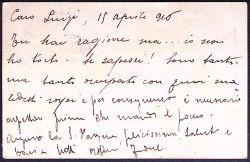 Caro Luigi, 15 aprile 916
Tu hai ragione ma... io non
ho torto. Se sapessi! Sono tanto
ma tanto occupato con questi ma
ledetti e per conseguenza è necessario
aspettare prima che mandi il
Auguro la S. Pasqua felicissima, saluti e
baci a tutti